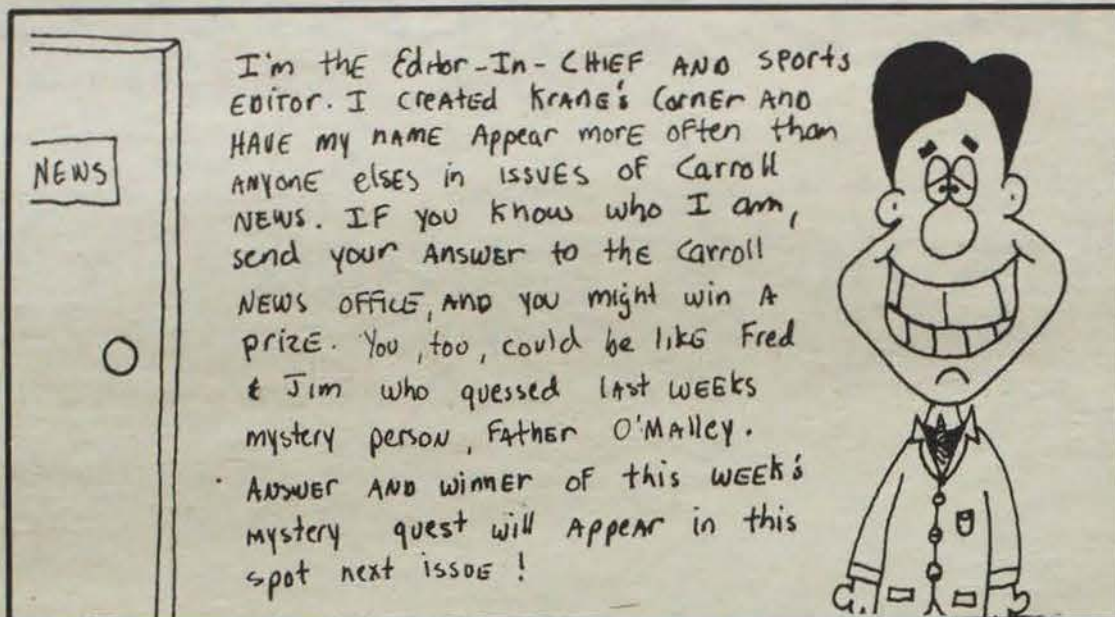 NEWS
I'm thE Editor-In-CHIEF AND SPorts
EDITOR. I CrEATEd KrANE's CornEr AND
HAVE my nAME AppEAr morE oftEn than
ANYonE elsES in ISSUES of Carroll
NEWS. IF you Know who I am,
send your ANSWER to thE Carroll
NEWS OFFICE, AND you might win A
prizE. You, too, could be likE Fred
& Jim who quessed lAst wEEks
mystery person, FAthEr O'MAlley.
ANSWER AND winnEr of this WEEk's
mystery quest will AppEAr in this
spot next issuE !